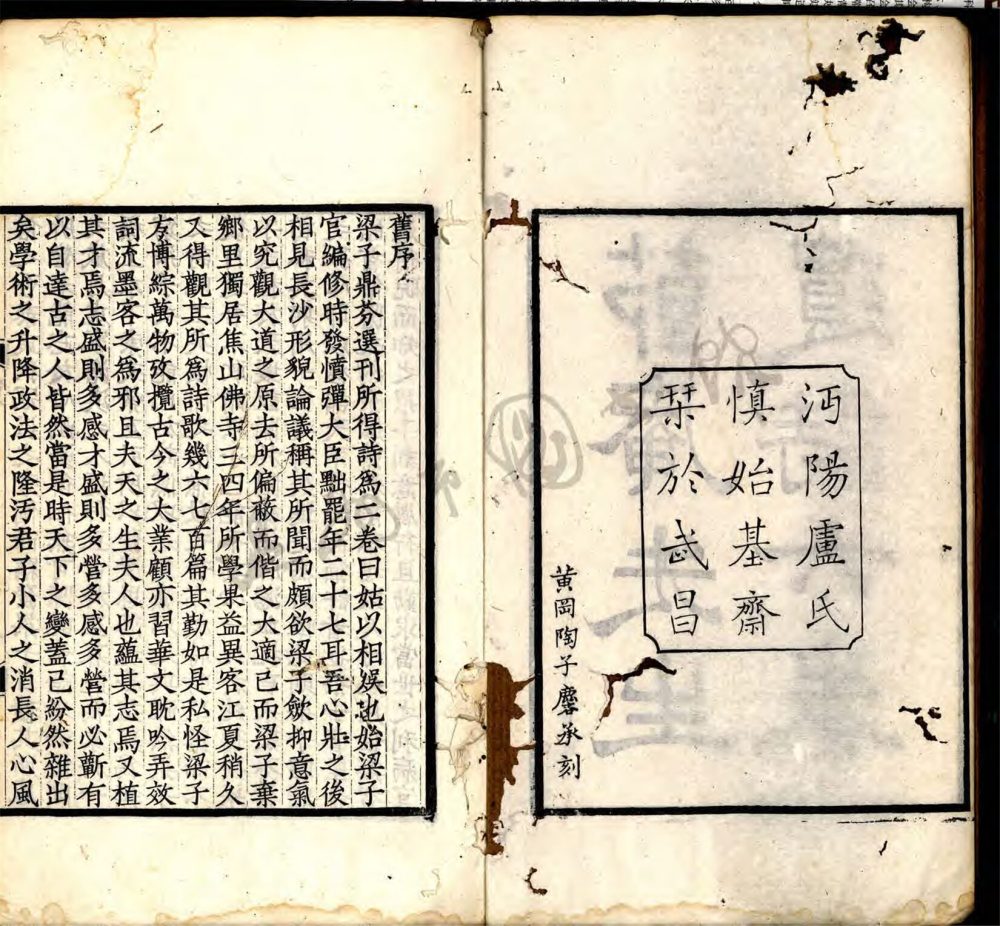 沔陽盧氏
慎始基齋
栞於武昌
黃岡陶子麐承刻
舊序
梁子鼎芬選刊所得詩爲二卷曰姑以相娛也始梁子
官編修時發憤彈大臣黜罷年二十七耳吾心壯之後
相見長沙形貌論議稱其所聞而頗欲梁子斂抑意氣
以究觀大道之原去所偏蔽而偕之大適已而梁子棄
鄉里獨居焦山佛寺三四年所學果益異客江夏稍久
又得觀其所爲詩歌幾六七百篇其勤如是私怪梁子
方博綜萬物攷攬古今之大業顧亦習華文耽吟弄效
詞流墨客之爲邪且夫天之生夫人也蘊其志焉又植
其才焉志盛則多感才盛則多營多感多營而必蘄有
以自達古之人皆然當是時天下之變蓋已紛然雜出
矣學術之升降政法之隆汚君子小人之消長人心風